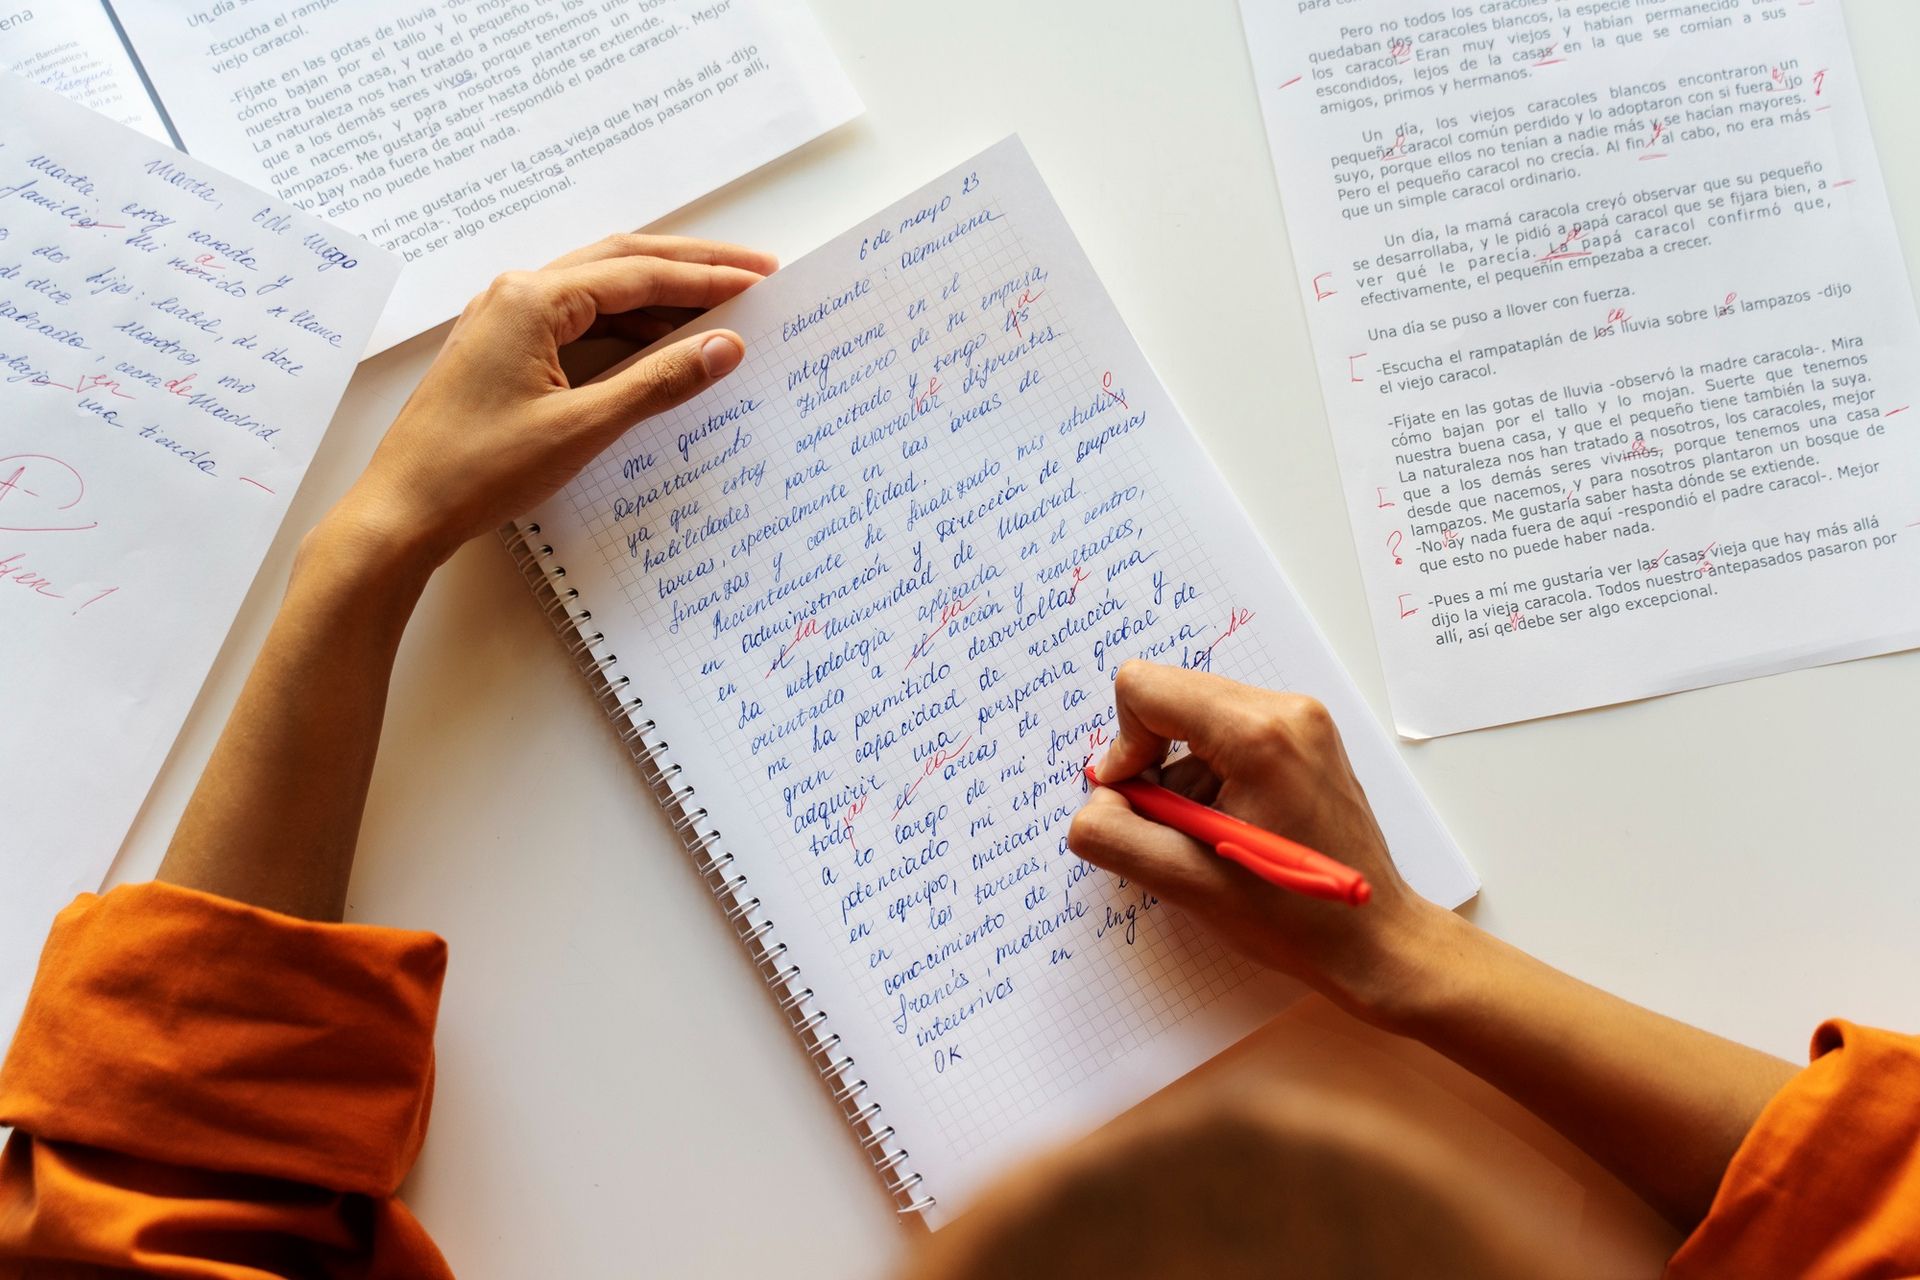 Un día se
-Escucha el rampa
viejo caracol.
-Fíjate en las gotas de lluvia
cómo bajan por el tallo y lo mojan
nuestra buena casa, y que el pequeño
La naturaleza nos han tratado a nosotros, los
que a los demás seres vivos, porque tenemos una
que nacemos, y para nosotros plantaron un bosq
lampazos. Me gustaría saber hasta dónde se extiende.
No hay nada fuera de aquí -respondió el padre caracol-. Mejor
esto no puede haber nada.
a mí me gustaría ver la casa vieja que hay más allá -dijo
caracola-. Todos nuestros antepasados pasaron por allí,
be ser algo excepcional.
Marta, 6 de mayo
Marta. Estoy casada y
familiar. Mi marido se llama
dos hijos: Isabel, de doce
de diez
nosotros
cerca de Madrid.
en
una tienda
A-
bien!
6 de mayo 23
Estudiante: Almudena
Me gustaría integrarme en el
Departamento Financiero de su empresa,
ya que estoy capacitado y tengo los a
habilidades para desarrollar diferentes
tareas, especialmente en las áreas de
finanzas y contabilidad.
Recientemente he finalizado mis estudios o
en Administración y Dirección de Empresas
en el la Universidad de Madrid.
La metodología aplicada en el centro,
orientada a el la acción y resultados,
me ha permitido desarrollar una
gran capacidad de resolución y
adquirir una perspectiva global de
todo as el la areas de la empresa.
a lo largo de mi formac hoy he
potenciado mi espíritu
en equipo, iniciativa
en las tareas,
conocimiento de idi
francés, mediante
intensivos en Inglé
OK
Pero no todos los caracoles
quedaban dos caracoles blancos, la especie
los caracol. Eran muy viejos y habían permanecido
escondidos, lejos de la casas en la que se comían a sus
amigos, primos y hermanos.
Un día, los viejos caracoles blancos encontraron un
pequeña caracol común perdido y lo adoptaron con si fuera ijo
suyo, porque ellos no tenían a nadie más y se hacían mayores.
Pero el pequeño caracol no crecía. Al fin al cabo, no era más
que un simple caracol ordinario.
Un día, la mamá caracola creyó observar que su pequeño
se desarrollaba, y le pidió a papá caracol que se fijara bien, a
ver qué le parecía. La papá caracol confirmó que,
efectivamente, el pequeñín empezaba a crecer.
Una día se puso a llover con fuerza.
-Escucha el rampataplán de los la lluvia sobre las lampazos -dijo
el viejo caracol.
-Fíjate en las gotas de lluvia -observó la madre caracola-. Mira
cómo bajan por el tallo y lo mojan. Suerte que tenemos
nuestra buena casa, y que el pequeño tiene también la suya.
La naturaleza nos han tratado a nosotros, los caracoles, mejor
que a los demás seres vivimos, porque tenemos una casa
desde que nacemos, y para nosotros plantaron un bosque de
lampazos. Me gustaría saber hasta dónde se extiende.
-No ay nada fuera de aquí -respondió el padre caracol-. Mejor
que esto no puede haber nada.
-Pues a mí me gustaría ver las casas vieja que hay más allá
dijo la vieja caracola. Todos nuestro antepasados pasaron por
allí, así qe debe ser algo excepcional.